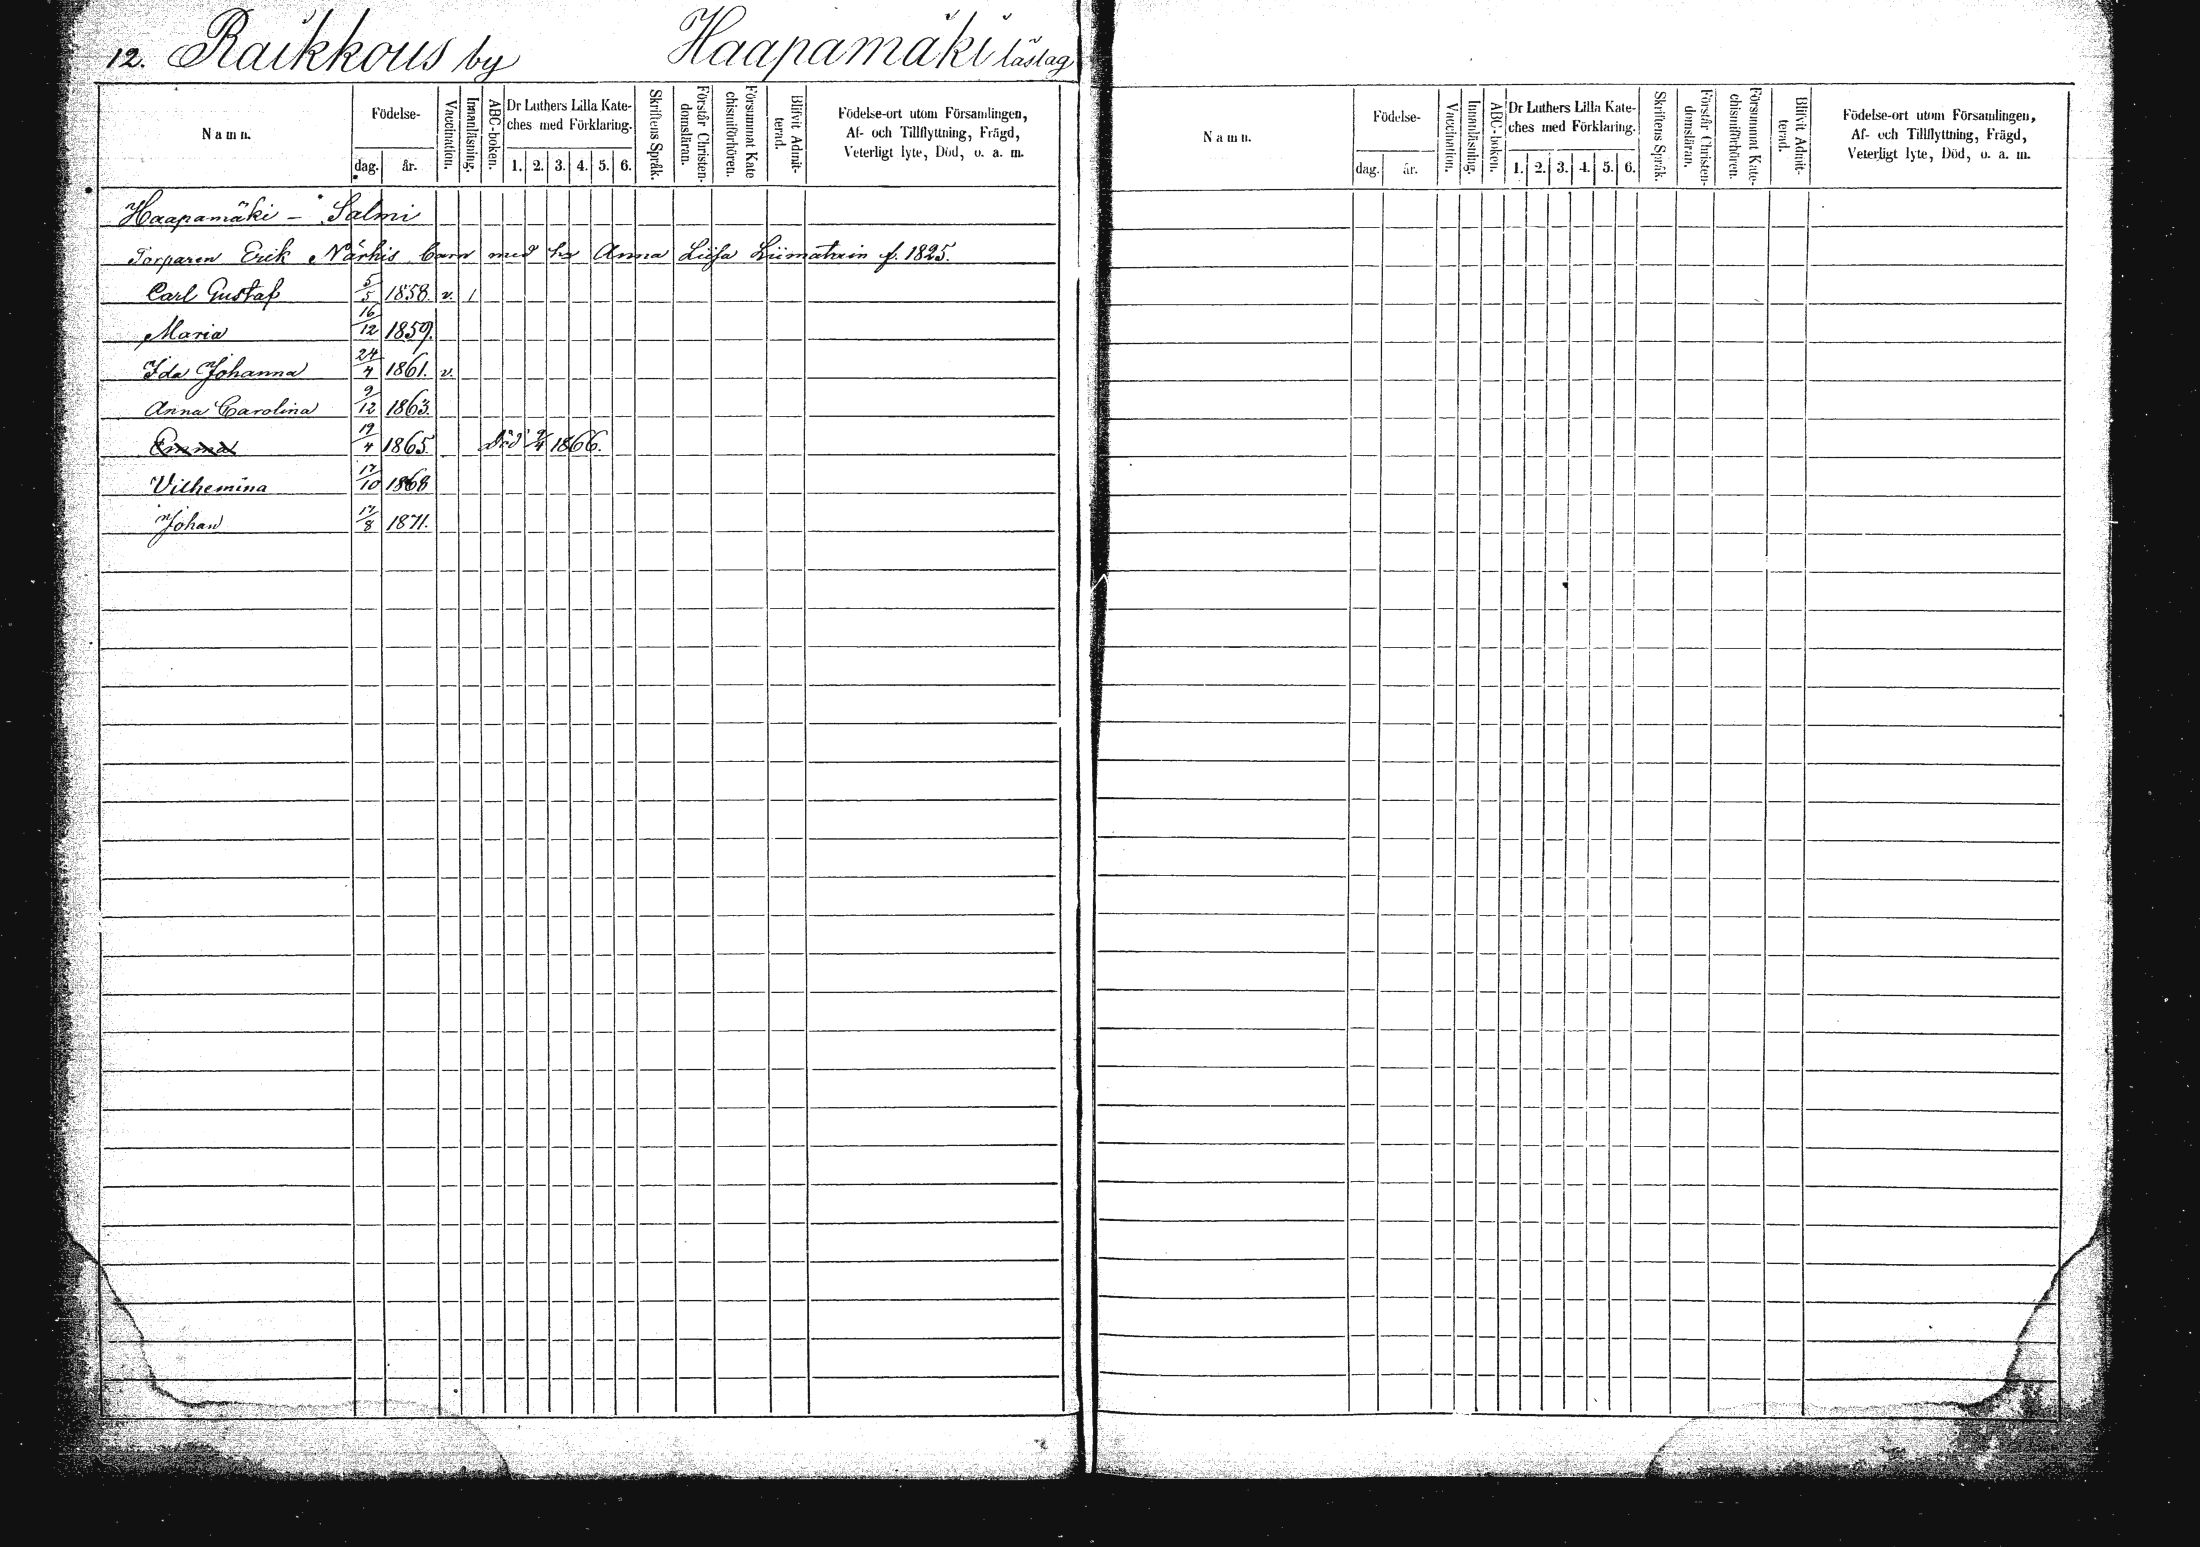 12. Raikkous by Haapamäki läslag
Namn. Födelse- dag. år. Vaccination. Innanläsning. ABC-boken. Dr Luthers Lilla Kate- ches med Förklaring. 1. 2. 3. 4. 5. 6. Skriftens Språk. Förstår Christen- domsläran. Försummat Kate chismiförhören. Blifvit Admit- terad. Födelse-ort utom Församlingen, Af- och Tillflyttning, Frägd, Veterligt lyte, Död, o. a. m.
Haapamäki - Salmi
Torparen Erik Närhis barn med h:u Anna Liisa Liimatain f. 1825.
Carl Gustaf 5/5 1858. v. 1
Maria 16/12 1859.
Ida Johanna 24/4 1861. v.
Anna Carolina 9/12 1863.
Emma 19/4 1865. död 9/4 1866.
Vilhemina 17/10 1868
Johan 17/8 1871.
Namn. Födelse- dag. år. Vaccination. Innanläsning. ABC-boken. Dr Luthers Lilla Kate- ches med Förklaring. 1. 2. 3. 4. 5. 6. Skriftens Språk. Förstår Christen- domsläran. Försummat Kate- chismiförhören. Blifvit Admit- terad. Födelse-ort utom Församlingen, Af- och Tillflyttning, Frägd, Veterligt lyte, Död, o. a. m.